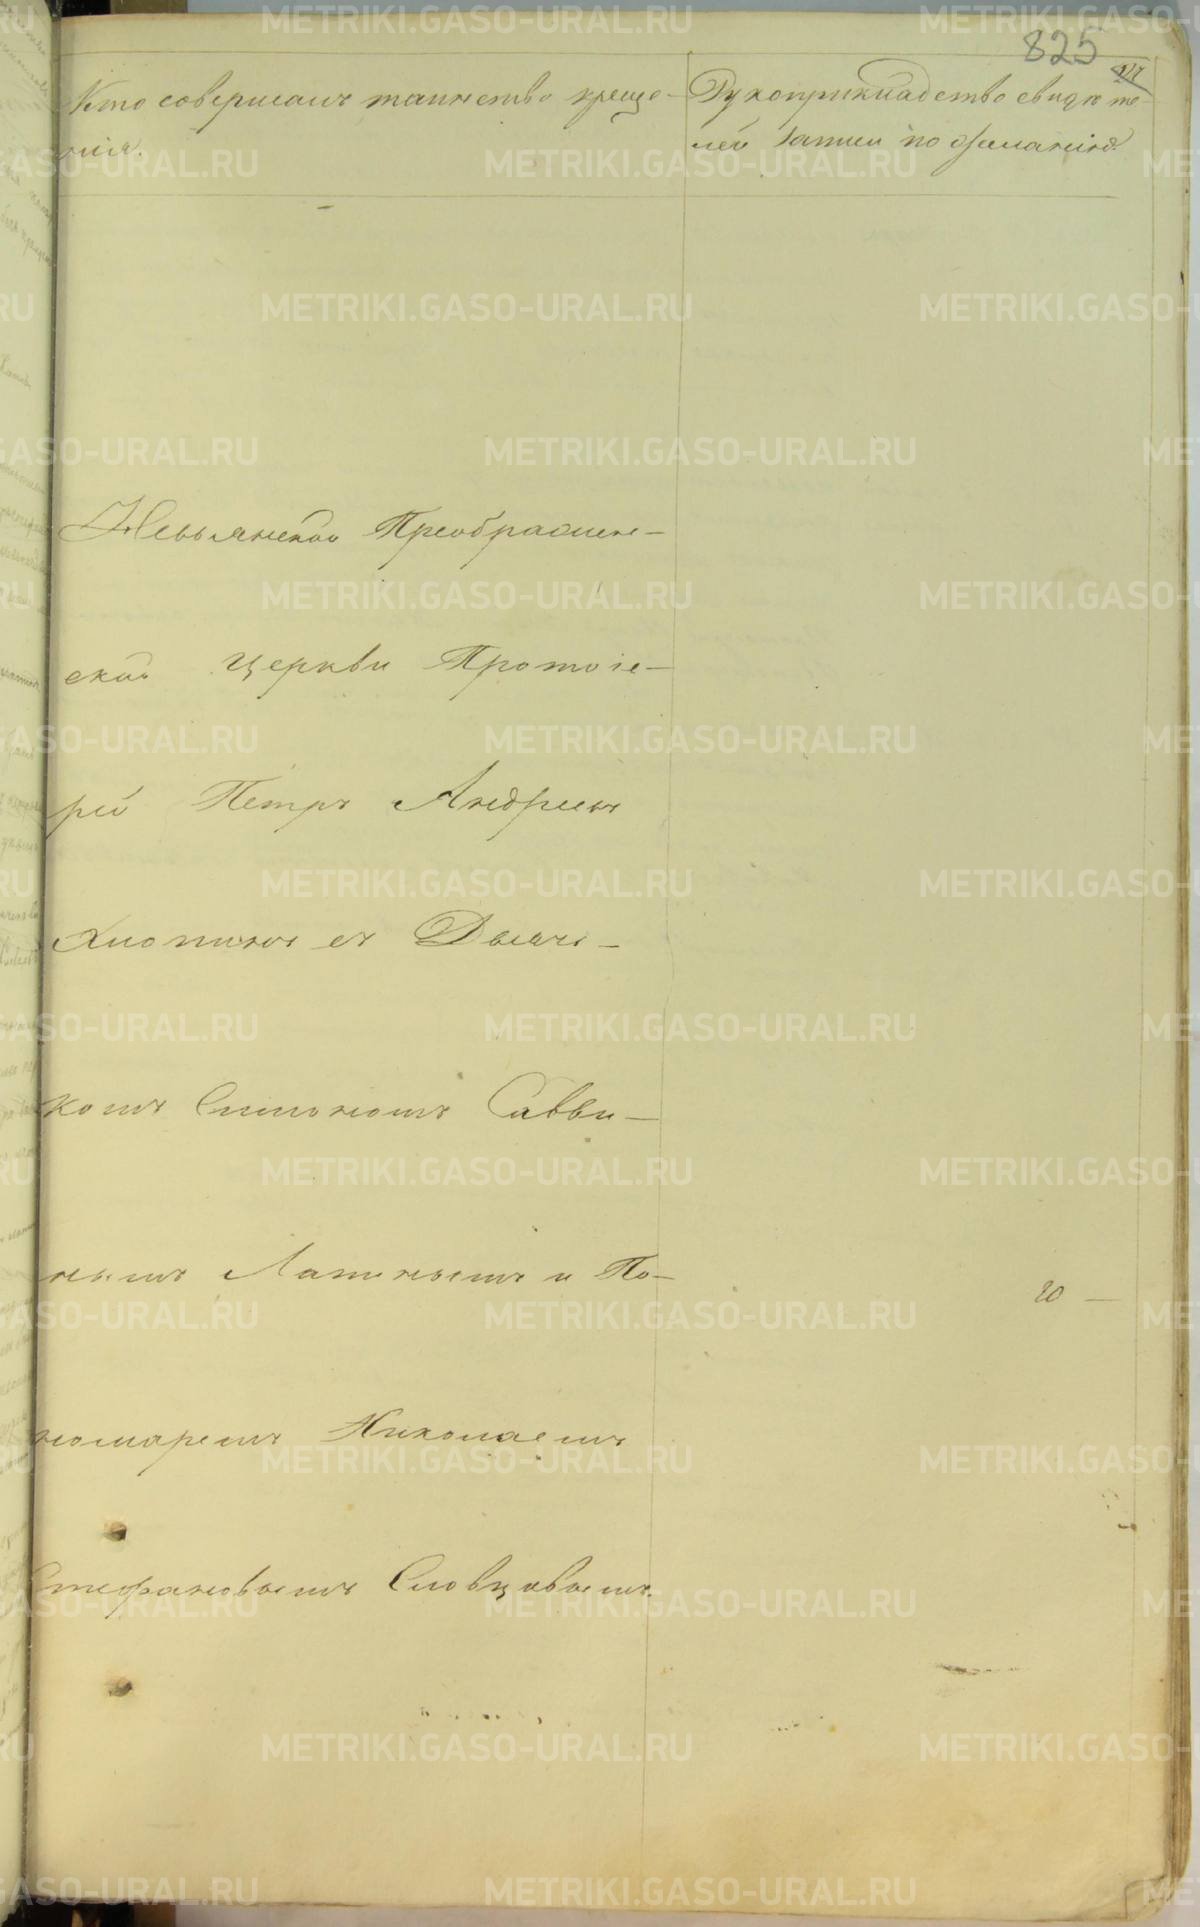 825
Кто совершалъ таинство креще-
нія.
Рукоприкладство свидѣте-
лей записи по желанію.
Невьянской Преображен-
ской Церкви Протоіе-
рей Петръ Андреевъ
Хлопинъ съ Дьячк-
комъ Симономъ Савви-
нымъ Лапинымъ и По-
номаремъ Николаемъ
Стефановымъ Словцовымъ.
20 —